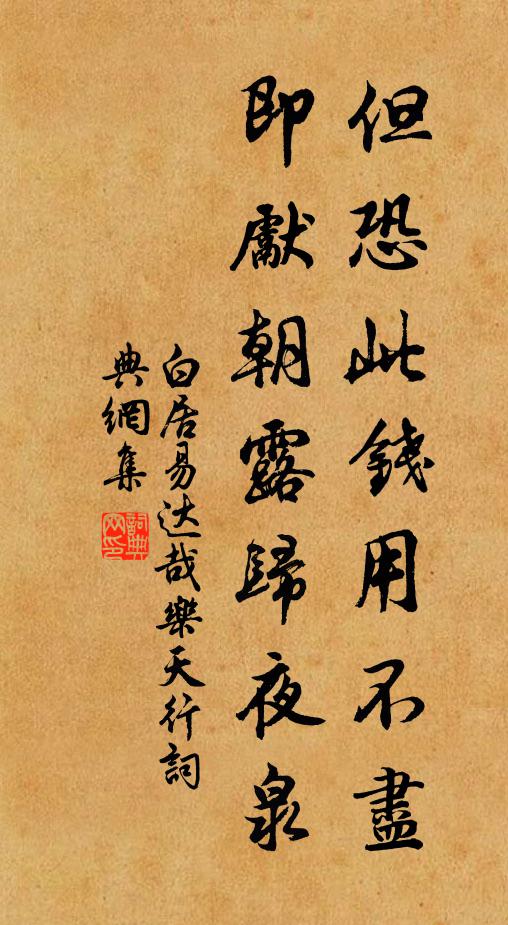 但恐此錢用不盡
即獻朝露歸夜泉
白居易达哉樂天行詞
典網集
詞典
网印